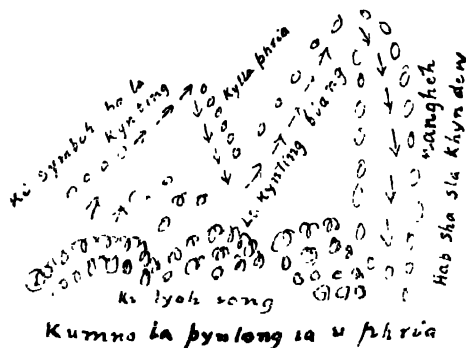 Ki symboh ha la
kynting
Kylla phria
La kynting biang
hab sha sla khyndew
Ki lyoh song
Kumno ia pynlong ia u phria